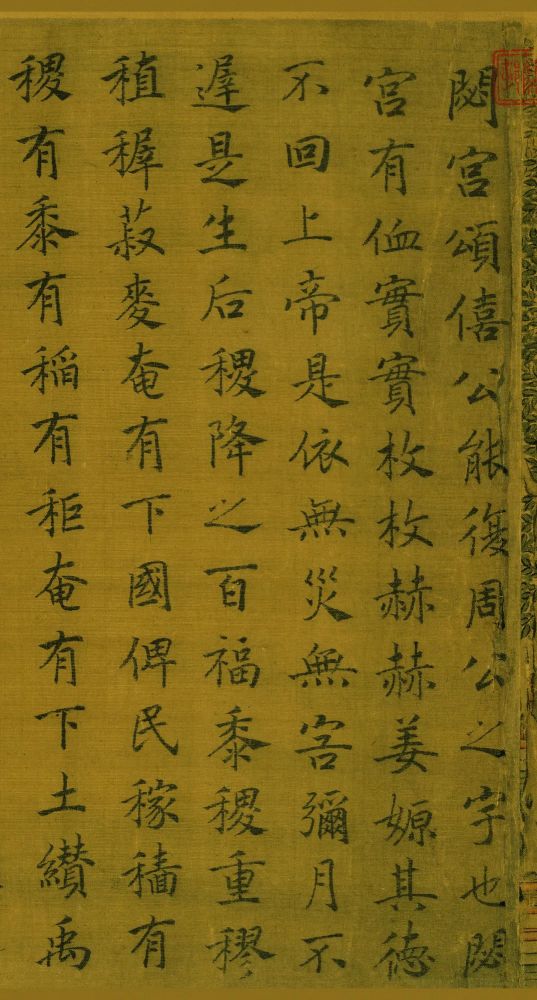 閟宮頌僖公能復周公之宇也閟
宮有侐實實枚枚赫赫姜嫄其德
不回上帝是依無災無害彌月不
遲是生后稷降之百福黍稷重穋
稙稺菽麥奄有下國俾民稼穡有
稷有黍有稲有秬奄有下土纘禹